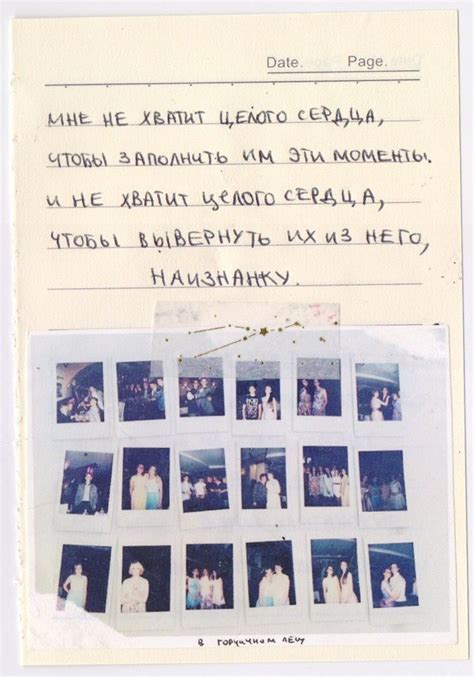 Date. Page.
МНЕ НЕ ХВАТИТ ЦЕЛОГО СЕРДЦА,
ЧТОБЫ ЗАПОЛНИТЬ ИМ ЭТИ МОМЕНТЫ.
И НЕ ХВАТИТ ЦЕЛОГО СЕРДЦА,
ЧТОБЫ ВЫВЕРНУТЬ ИХ ИЗ НЕГО,
НАИЗНАНКУ.
В ГОРЧИЧНОМ